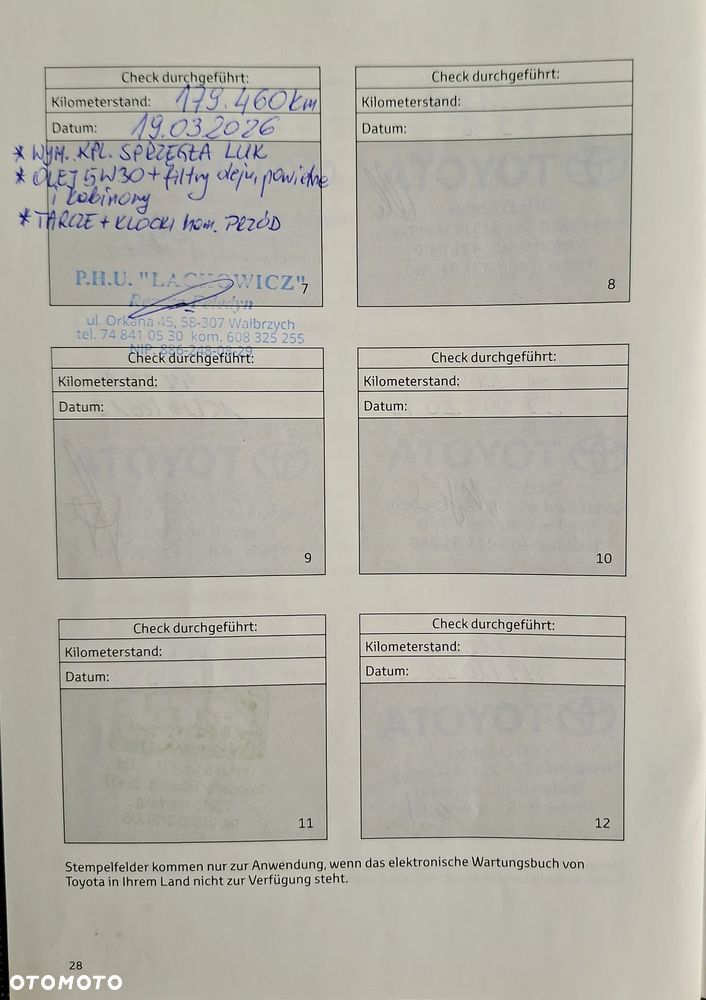 Check durchgeführt:
Kilometerstand: 179.460 km
Datum: 19.03.2026
* WYM. KPL. SPRZĘGŁA LUK
* OLEJ 5W30 + filtry oleju, powietrza
i kabinowy
* TARCZE + KLOCKI ham. PRZÓD
P.H.U. "LACHOWICZ"
7
ul. Orkana 45, 58-307 Wałbrzych
tel. 74 841 05 30 kom. 608 325 255
NIP 886-248-08-29
Check durchgeführt:
Kilometerstand:
Datum:
TOYOTA
8
Check durchgeführt:
Kilometerstand:
Datum:
TOYOTA
9
Check durchgeführt:
Kilometerstand:
Datum:
TOYOTA
10
Check durchgeführt:
Kilometerstand:
Datum:
11
Check durchgeführt:
Kilometerstand:
Datum:
TOYOTA
12
Stempelfelder kommen nur zur Anwendung, wenn das elektronische Wartungsbuch von
Toyota in Ihrem Land nicht zur Verfügung steht.
28
OTOMOTO